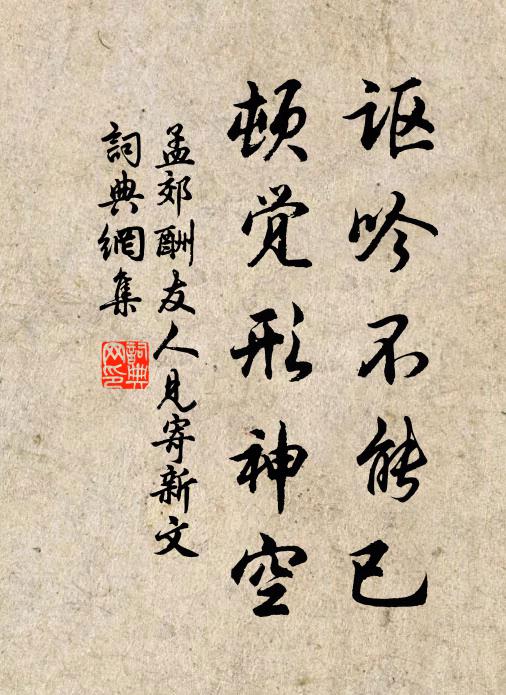 讴吟不能已
顿觉形神空
孟郊酬友人见寄新文
词典网集
詞典网印